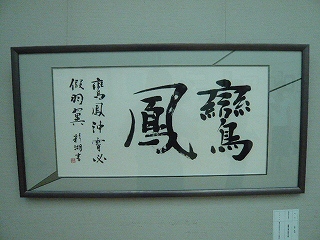 鸞鳳
鸞鳳沖霄必
假羽翼